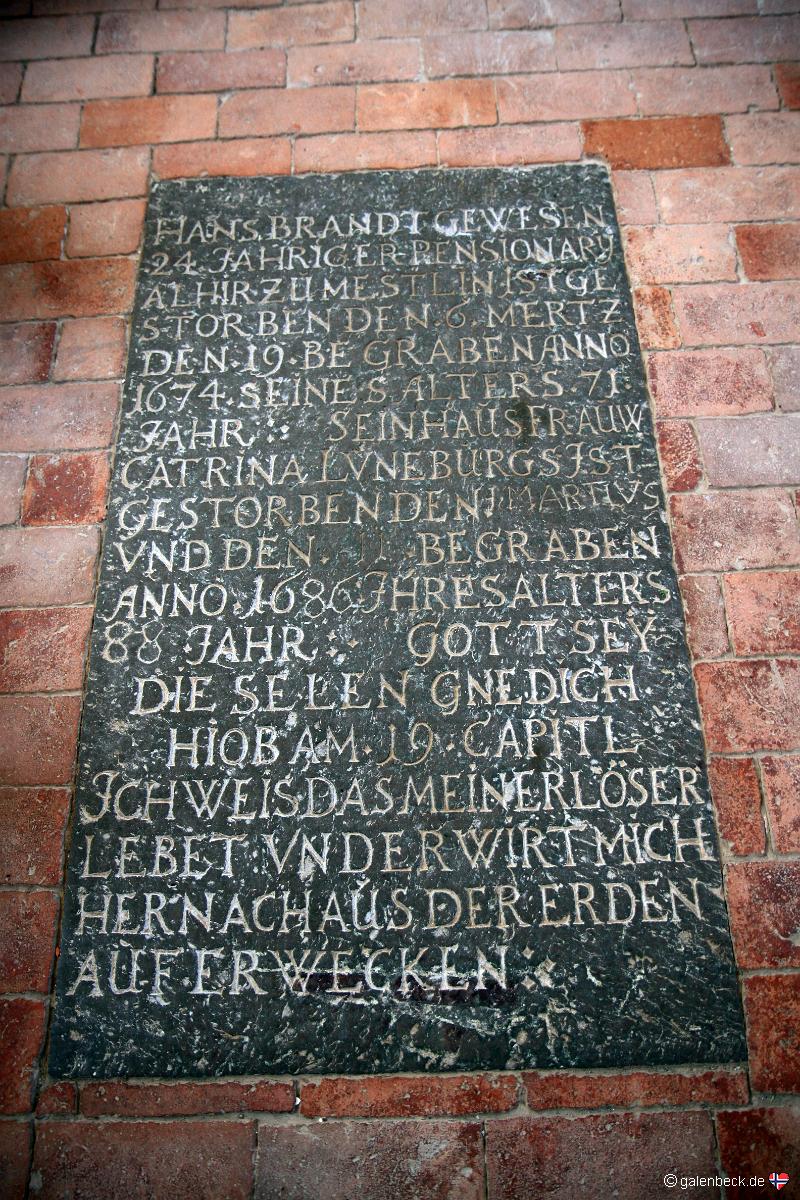 HANS.BRANDT GEWESEN
24.JAHRIGER PENSIONARY
ALHIR.ZU MESTLIN IST GE
STORBEN DEN.6.MERTZ
DEN.19.BE GRABEN ANNO
1674.SEINES ALTERS 71.
JAHR SEIN HAUSFRAUW
CATRINA LVNEBURGS JST
GESTORBEN DEN MARTIVS
VND DEN. 11 .BEGRABEN
ANNO.1686 JHRES ALTERS
88 JAHR GOTT SEY
DIE SELEN GNEDICH
HIOB AM.19.CAPITL
JCH WEIS DAS MEIN ERLÖSER
LEBET VND ER WIRT MICH
HERNACH AUS DER ERDEN
AUF.ERWECKEN
© galenbeck.de